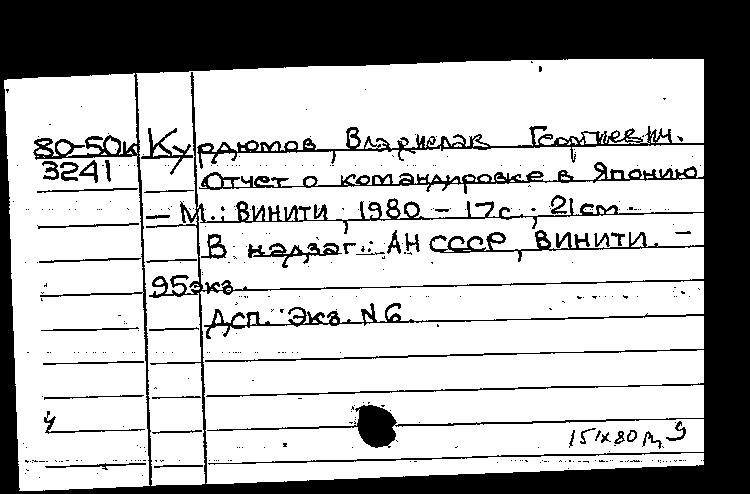 80-50к Курдюмов, Владислав Георгиевич.
3241 Отчет о командировке в Японию
— М.: ВИНИТИ, 1980 – 17с.; 21см.
В надзаг.: АН СССР, ВИНИТИ. –
95экз.
Дсп. Экз. N6.